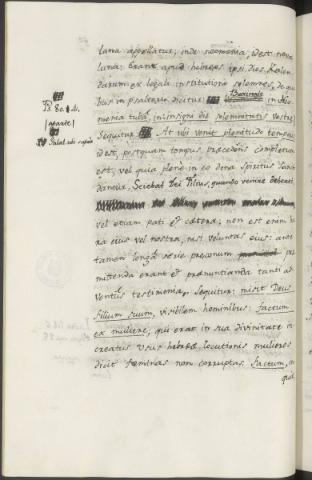 luna appellatur; inde neomenia, idest nova
luna: erant apud hebreos ipsi dies Kalen
darum ex legali institutione solemnes, de qui
bus in psalterio dicitur: Buccinate in Neo
menia tuba, in insigni die solemnitatis vestrę
Ps. 80. 4.
Galat. ubi supra
Sequitur At ubi venit plenitudo temporis
idest, postquam tempus præcedens completum
est, vel quia plene in eo dona Spiritus Sancti
danda. Sciebat Dei Filius, quando venire deberet
vel etiam pati et cætera; non est enim ho
ra eius vel nostra, nisi voluntas eius: ante
tamen longa serie præconum præ
mittenda erant et pronuntianda tanti ad
ventus testimonia. Sequitur: misit Deus
filium suum, visibilem hominibus: factum
ex muliere, qui erat in sua divinitate in
creatus. Usus hebreę locutionis mulieres
dicit fœminas non corruptas. factum,